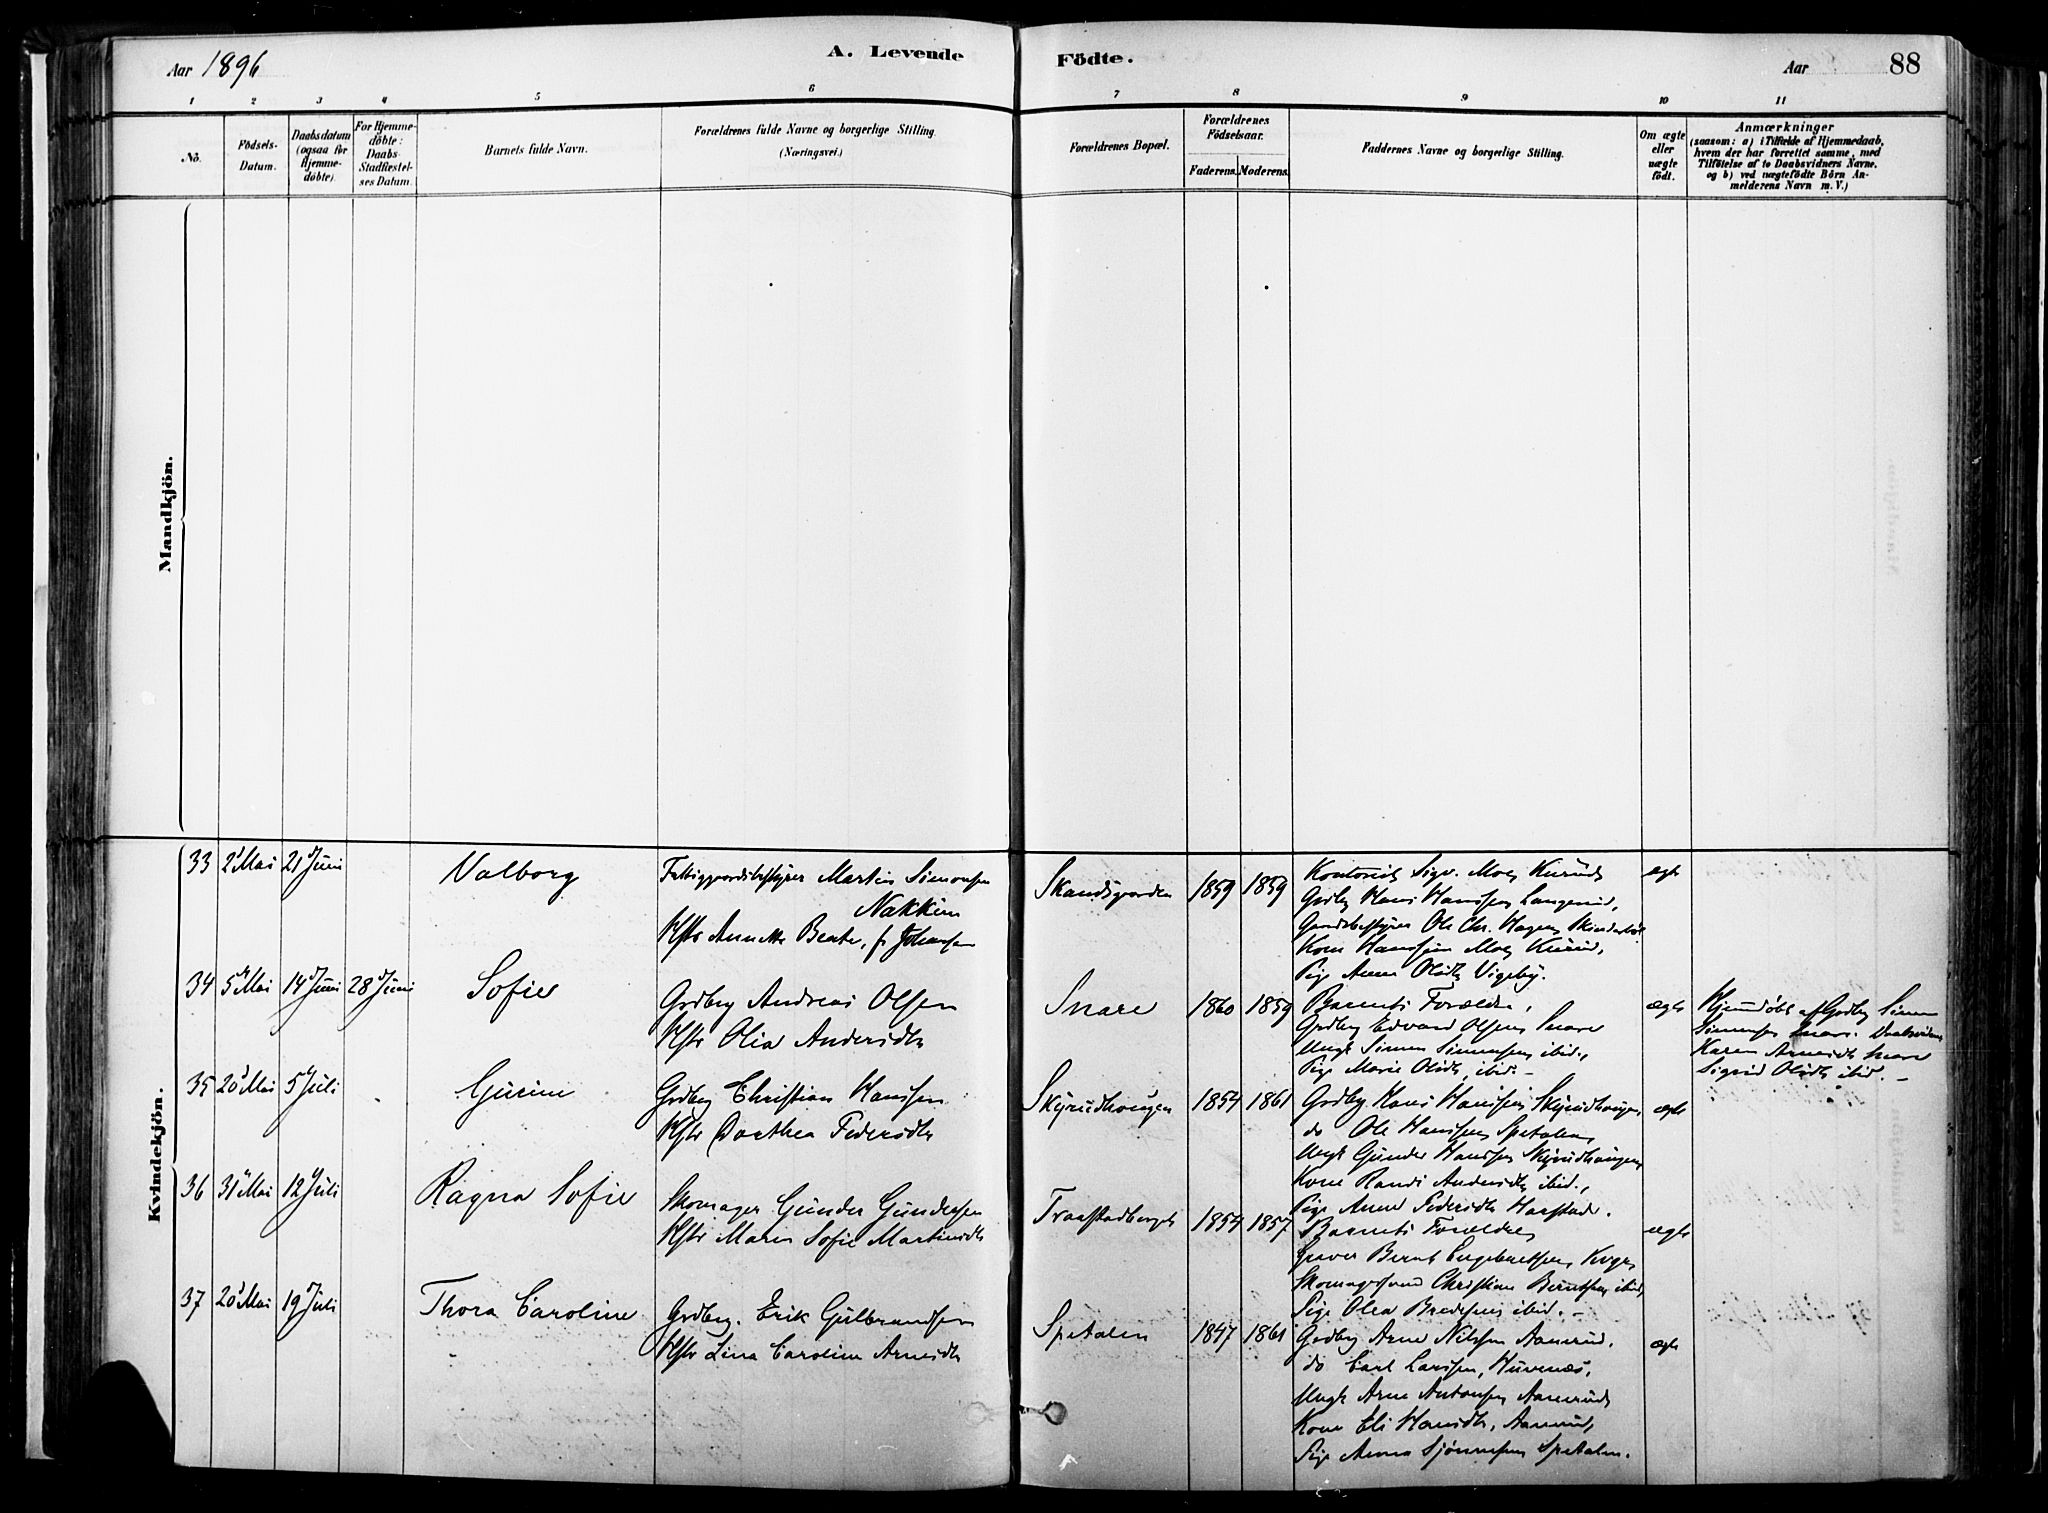 Aar 1896
A. Levende
Födte.
Aar
88
1 2 3 4 5 6 7 8 9 10 11
No.
Födsels-
Datum.
Daabsdatum
(ogsaa for
Hjemme-
döbte).
For Hjemme-
döbte:
Daabs-
Stadfæstel-
ses Datum.
Barnets fulde Navn.
Forældrenes fulde Navne og borgerlige Stilling.
(Næringsvei.)
Forældrenes Bopæl.
Forældrenes
Födselsaar.
Faderens. Moderens.
Faddernes Navne og borgerlige Stilling.
Om ægte
eller
uægte
födt.
Anmærkninger
(saasom: a) i Tilfælde af Hjemmedaab,
hvem der har forrettet samme, med
Tilföielse af to Daabsvidners Navne.
og b) ved uægtefödte Börn An-
melderens Navn m. V.)
Mandkjön.
Kvindekjön.
33 2 Mai 21 Juni
Valborg
Fattiggaardsbestyrer Martin Simonsen
Nakkim
Hstr Annette Beate, f. Johansen
Skandsgarden
1859 1859
Kontorist Sigv. Moe, Knirud
Grdbr Hans Hanssen Langerud,
Gaardsbestyrer Ole Chr. Hagen
Kone Moe, Knirud,
Pige Anne Olsdtr Vigeby.
ægte
34 5 Mai 14 Juni 28 Juni
Sofie
Grdbr Andreas Olsen
Hstr Olia Andersdtr
Snare
1860 1859
Barnets Forældre,
Grdbr Edvard Olsen Snare
Ungk Simen Simensen ibid.,
Pige Marie Olsdtr, ibid. -
ægte
Hjemdøbt af Grdbr Simen
Simensen Snare. Daabsvidner
Karen Arnesdtr Snare
Sigrid Olsdtr ibid. -
35 20 Mai 5 Juli
Gurine
Grdbr Christian Hanssen
Hstr Dorthea Pedersdtr
Skyrudhaugen
1854 1861
Grdbr. Hans Hanssen, Skyrudhaugen
do Ole Hanssen Spetalen,
Ungk Gunder Hanssen Skyrudhaugen,
Kone Randi Andersdtr ibid.,
Pige Anne Pedersdtr Harstad.
ægte
36 31 Mai 12 Juli
Ragna Sofie
Skomager Gunder Gundersen
Hstr Maren Sofie Martinsdtr
Traastadberget
1854 1857
Barnets Forældre,
Graver Bernt Engebretsen,
Skomagersvend Christian Berntsen ibid,
Pige Olea Bredesen ibid. -
ægte
37 20 Mai 19 Juli
Thora Caroline
Grdbr. Erik Gulbrandsen
Hstr Lina Caroline Arnesdtr
Spetalen
1847 1861
Grdbr Arne Nilssen Aamrud.
do Carl Larssen, Huvenæs,
Ungk Arne Antonsen Aamrud
Kone Eli Hansdtr, Aamrud,
Pige Anna Sjønnesen Spetalen.
ægte